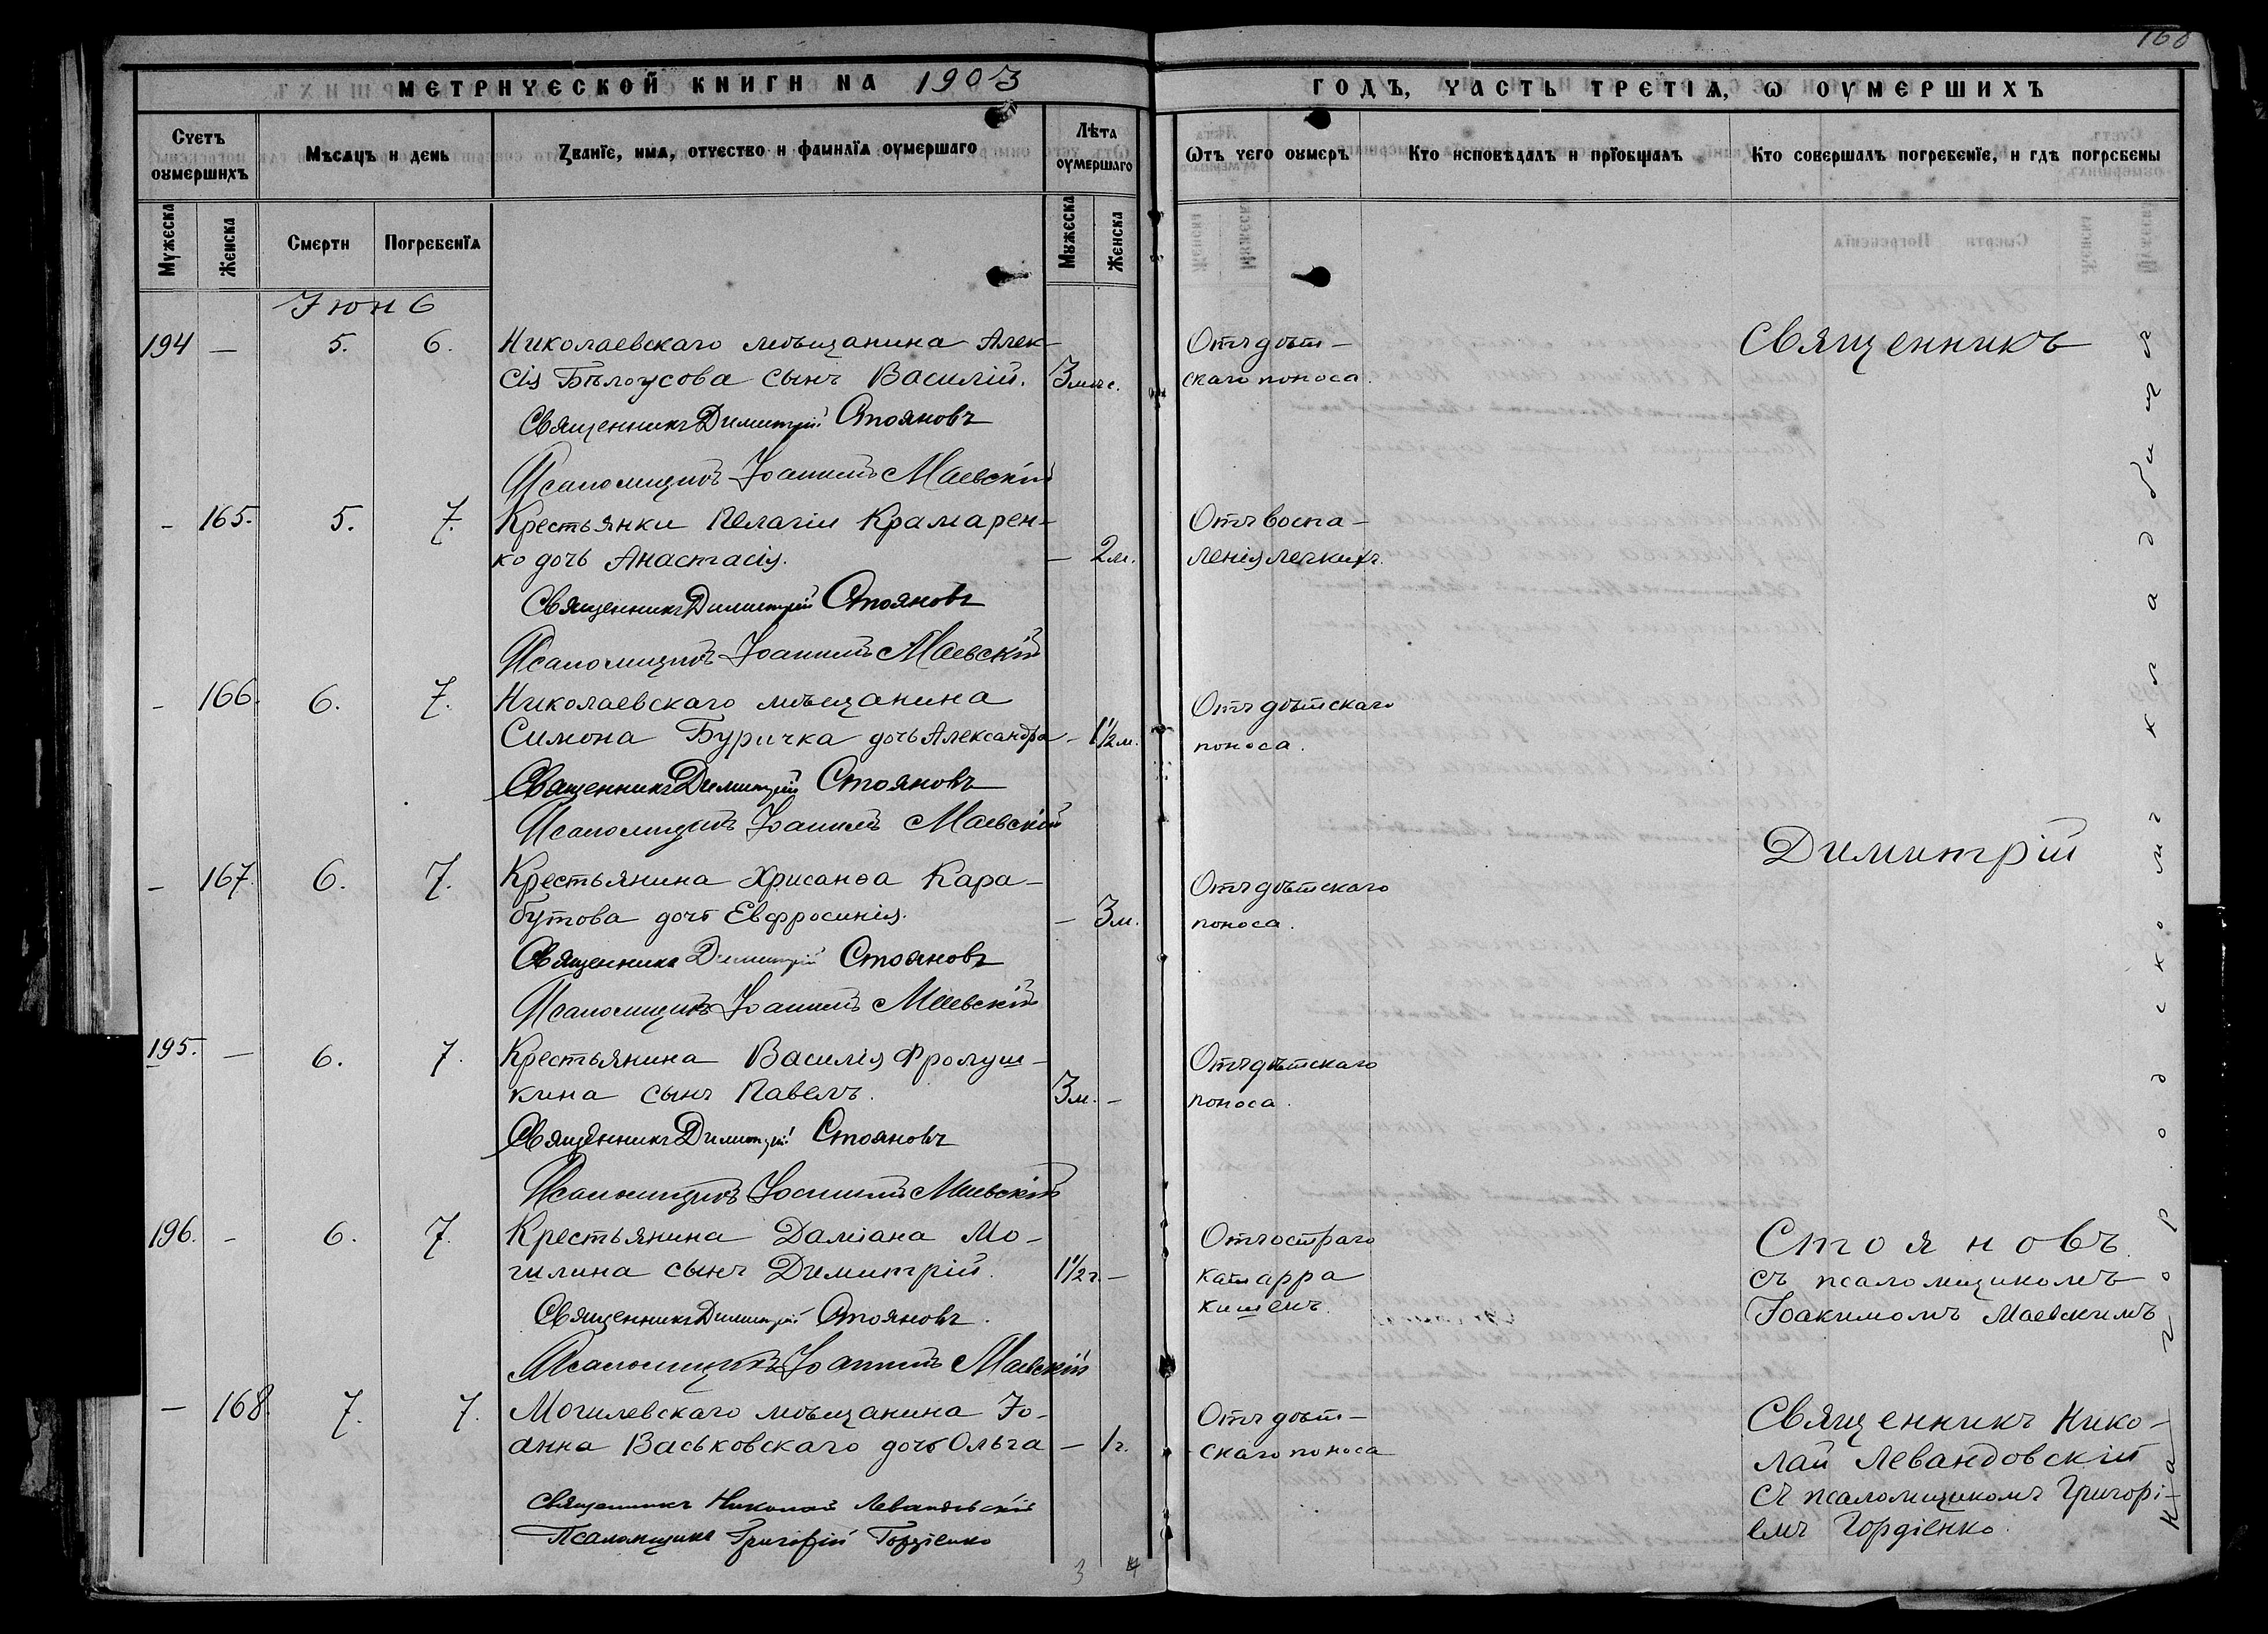 168
МЕТРИЧЕСКОЙ КНИГИ НА 1903
ГОДЪ, ЧАСТЬ ТРЕТІѦ, Ѡ ОУМЕРШИХЪ
Счетъ оумершихъ
Мѣсѧцъ и день
Званїе, имѧ, отчество и фамилїѧ оумершаго
Лѣта оумершаго
Ѿтъ чего оумеръ
Кто исповѣдалъ и прїобщалъ
Кто совершалъ погребенїе, и гдѣ погребены
Мужеска
Женска
Смерти
Погребенїѧ
Мужеска
Женска
Іюнь
194 — 5. 6. Николаевскаго мѣщанина Алек-
сія Бѣлоусова сынъ Василій. 3 мѣс.
Отъ дѣт-
скаго поноса.
Священникъ Димитрій Стояновъ
Псаломщикъ Іоакимъ Маевскій
Священникъ
- 165. 5. 7. Крестьянки Пелагіи Крамарен-
ко дочь Анастасія. — 2 м.
Отъ воспа-
ленія легкихъ.
Священникъ Димитрій Стояновъ
Псаломщикъ Іоакимъ Маевскій
- 166. 6. 7. Николаевскаго мѣщанина
Симона Буричка дочь Александра - 1½ м.
Отъ дѣтскаго
поноса.
Священникъ Димитрій Стояновъ
Псаломщикъ Іоакимъ Маевскій
Димитрій
- 167. 6. 7. Крестьянина Хрисанѳа Кара-
бутова дочь Евфросинія. — 3 м.
Отъ дѣтскаго
поноса.
Священникъ Димитрій Стояновъ
Псаломщикъ Іоакимъ Маевскій
195. — 6. 7. Крестьянина Василія Фролуш-
кина сынъ Павелъ. 3 м. -
Отъ дѣтскаго
поноса.
Священникъ Димитрій Стояновъ
Псаломщикъ Іоакимъ Маевскій
196. - 6. 7. Крестьянина Даміана Мо-
гилина сынъ Димитрій. 1½ г. -
Отъ остраго
катарра
кишекъ.
Священникъ Димитрій Стояновъ.
Псаломщикъ Іоакимъ Маевскій
Стояновъ
съ псаломщикомъ
Іоакимомъ Маевскимъ
— 168. 7. 7. Могилевскаго мѣщанина Іо-
анна Васьковскаго дочь Ольга — 1 г.
Отъ дѣт-
скаго поноса
Священникъ Николай Левандовскій
Псаломщикъ Григорій Гордіенко
Священникъ Нико-
лай Левандовскій
съ псаломщикомъ Григорі-
емъ Гордіенко.
На городскомъ кладбищѣ
3 4